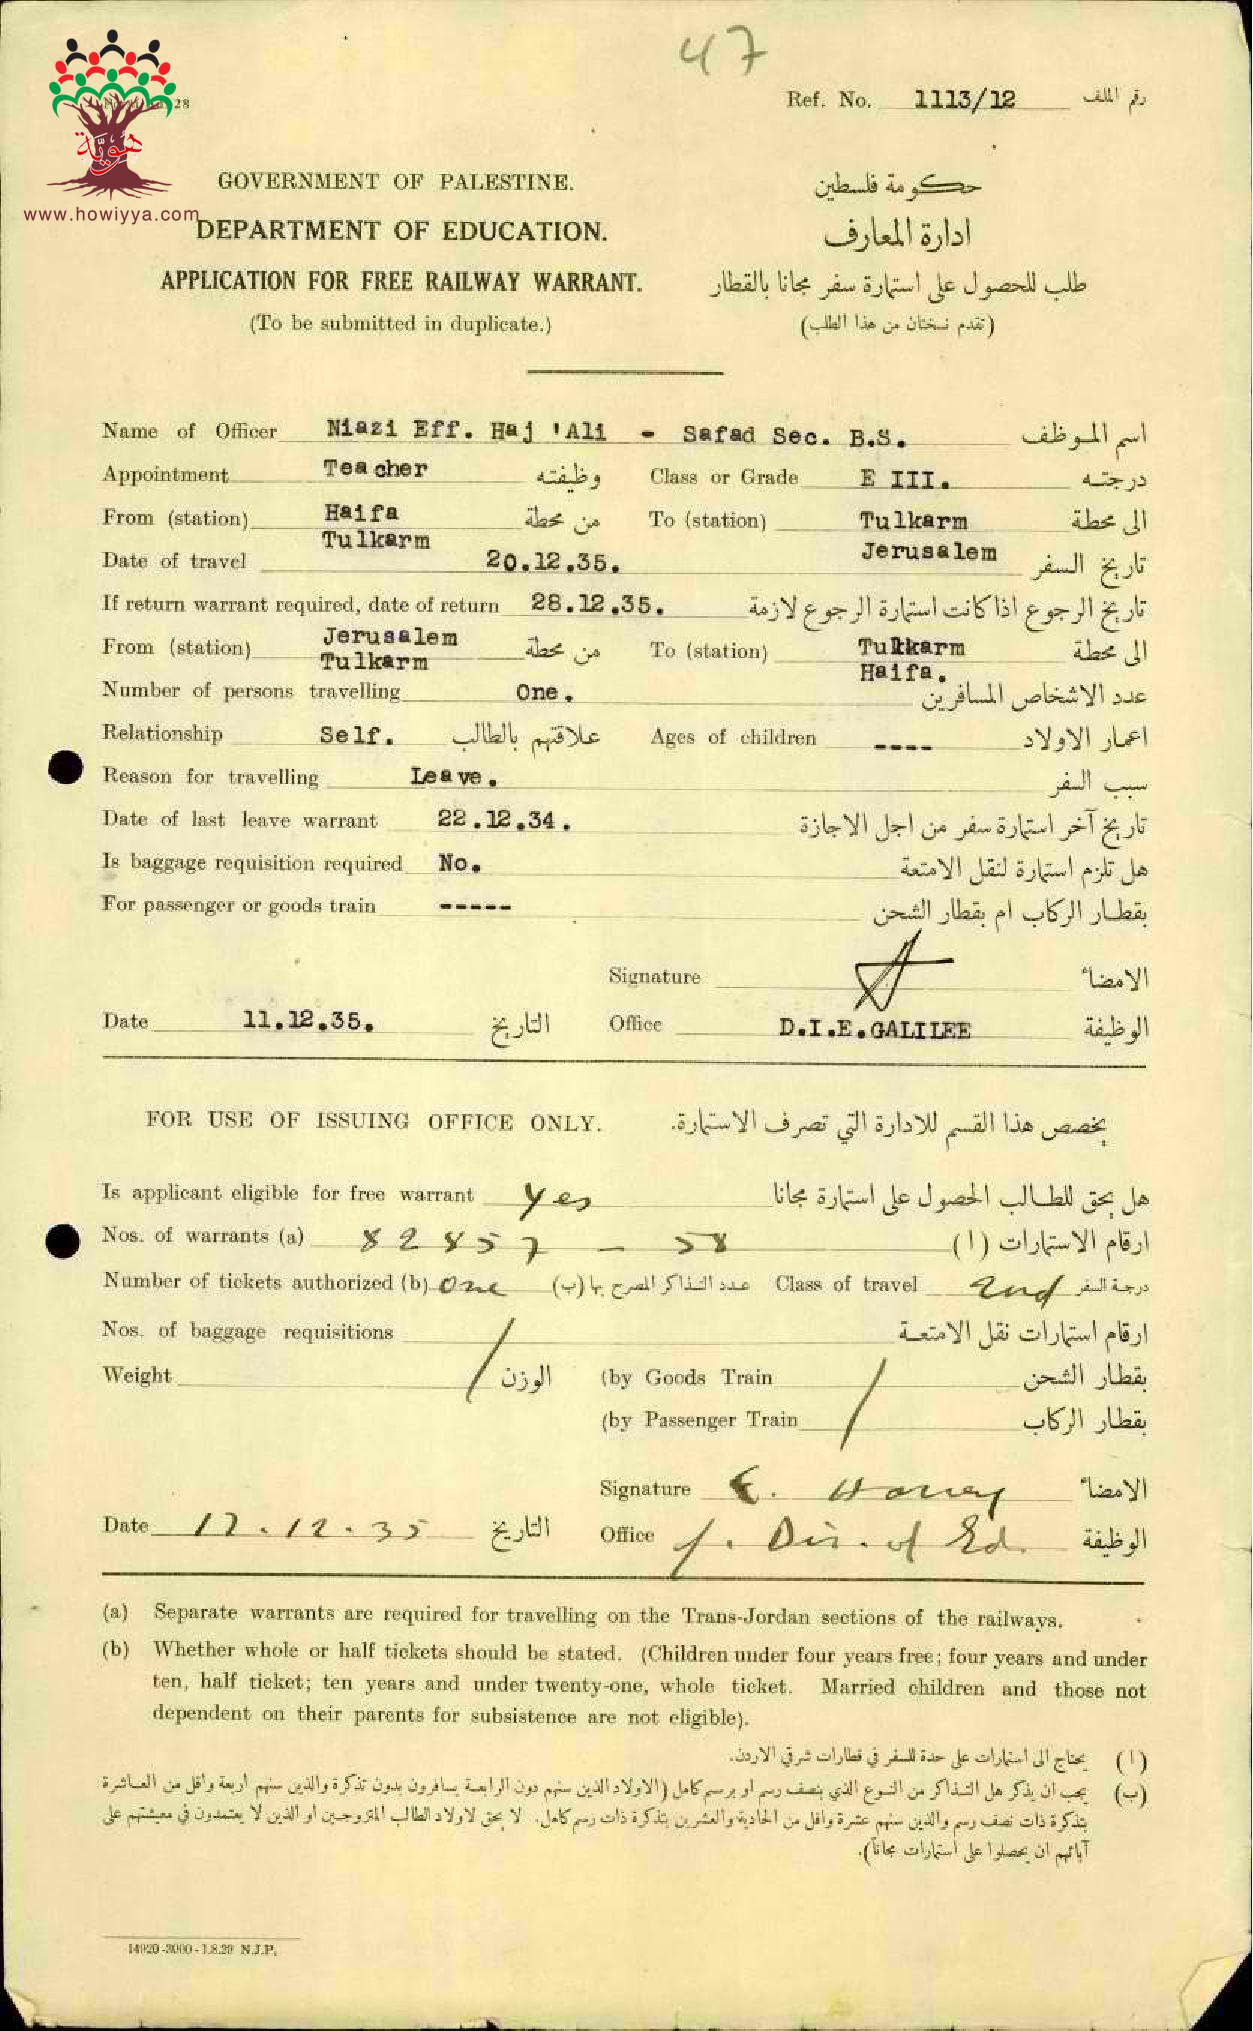 47
هويّة
www.howiyya.com
28
Ref. No. 1113/12 رقم الملف
GOVERNMENT OF PALESTINE. حكومة فلسطين
DEPARTMENT OF EDUCATION. ادارة المعارف
APPLICATION FOR FREE RAILWAY WARRANT. طلب للحصول على استمارة سفر مجانا بالقطار
(To be submitted in duplicate.) (تقدم نسختان من هذا الطلب)
Name of Officer Niazi Eff. Haj 'Ali - Safad Sec. B.S. اسم الموظف
Appointment Teacher وظيفته Class or Grade E III. درجته
From (station) Haifa من محطة To (station) Tulkarm الى محطة
Tulkarm Jerusalem
Date of travel 20.12.35. تاريخ السفر
If return warrant required, date of return 28.12.35. تاريخ الرجوع اذا كانت استمارة الرجوع لازمة
From (station) Jerusalem من محطة To (station) Tulkarm الى محطة
Tulkarm Haifa.
Number of persons travelling One. عدد الاشخاص المسافرين
Relationship Self. علاقتهم بالطالب Ages of children ---- اعمار الاولاد
Reason for travelling Leave. سبب السفر
Date of last leave warrant 22.12.34. تاريخ آخر استمارة سفر من اجل الاجازة
Is baggage requisition required No. هل تلزم استمارة لنقل الامتعة
For passenger or goods train ----- بقطار الركاب ام بقطار الشحن
Signature الامضاء
Date 11.12.35. التاريخ Office D.I.E.GALILEE الوظيفة
FOR USE OF ISSUING OFFICE ONLY. يخصص هذا القسم للادارة التي تصرف الاستمارة.
Is applicant eligible for free warrant Yes هل يحق للطالب الحصول على استمارة مجانا
Nos. of warrants (a) 82857 - 58 ارقام الاستمارات (ا)
Number of tickets authorized (b) One عدد التذاكر المصرح بها (ب) Class of travel 2nd درجة السفر
Nos. of baggage requisitions ارقام استمارات نقل الامتعة
Weight الوزن (by Goods Train بقطار الشحن
(by Passenger Train بقطار الركاب
Signature E. الامضاء
Date 17.12.35 التاريخ Office f. Dir. of Ed. الوظيفة
(a) Separate warrants are required for travelling on the Trans-Jordan sections of the railways.
(b) Whether whole or half tickets should be stated. (Children under four years free; four years and under
ten, half ticket; ten years and under twenty-one, whole ticket. Married children and those not
dependent on their parents for subsistence are not eligible).
(ا) يحتاج الى استمارات على حدة للسفر في قطارات شرقي الاردن.
(ب) يجب ان يذكر هل التذاكر من النوع الذي بنصف رسم او برسم كامل (الاولاد الذين سنهم دون الرابعة يسافرون بدون تذكرة والذين سنهم اربعة واقل من العاشرة
بتذكرة ذات نصف رسم والذين سنهم عشرة واقل من الحادية والعشرين بتذكرة ذات رسم كامل. لا يحق لاولاد الطالب المتزوجين او الذين لا يعتمدون في معيشتهم على
آبائهم ان يحصلوا على استمارات مجاناً).
14920-3000-1.8.29 N.J.P.